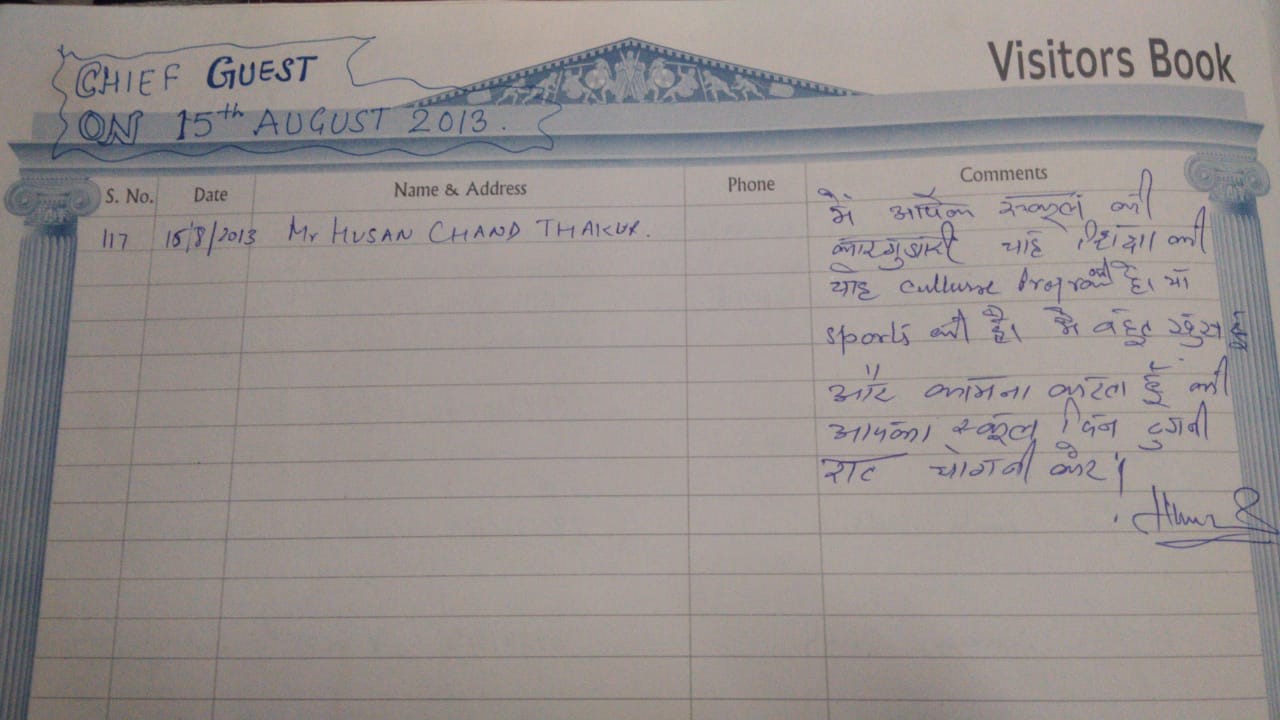 Visitors Book
CHIEF GUEST
ON 15th AUGUST 2013.
S. No. Date Name & Address Phone Comments
117 15/8/2013 Mr HUSAN CHAND THAKUR.
मैं आपके स्कूल की
कारगुजारी चाहे शिक्षा की
चाहे culture Program की है। या
sports की है। मैं बहुत खुश हूँ
और कामना करता हूँ की
आपका स्कूल दिन दुगनी
रात चोगनी करे।